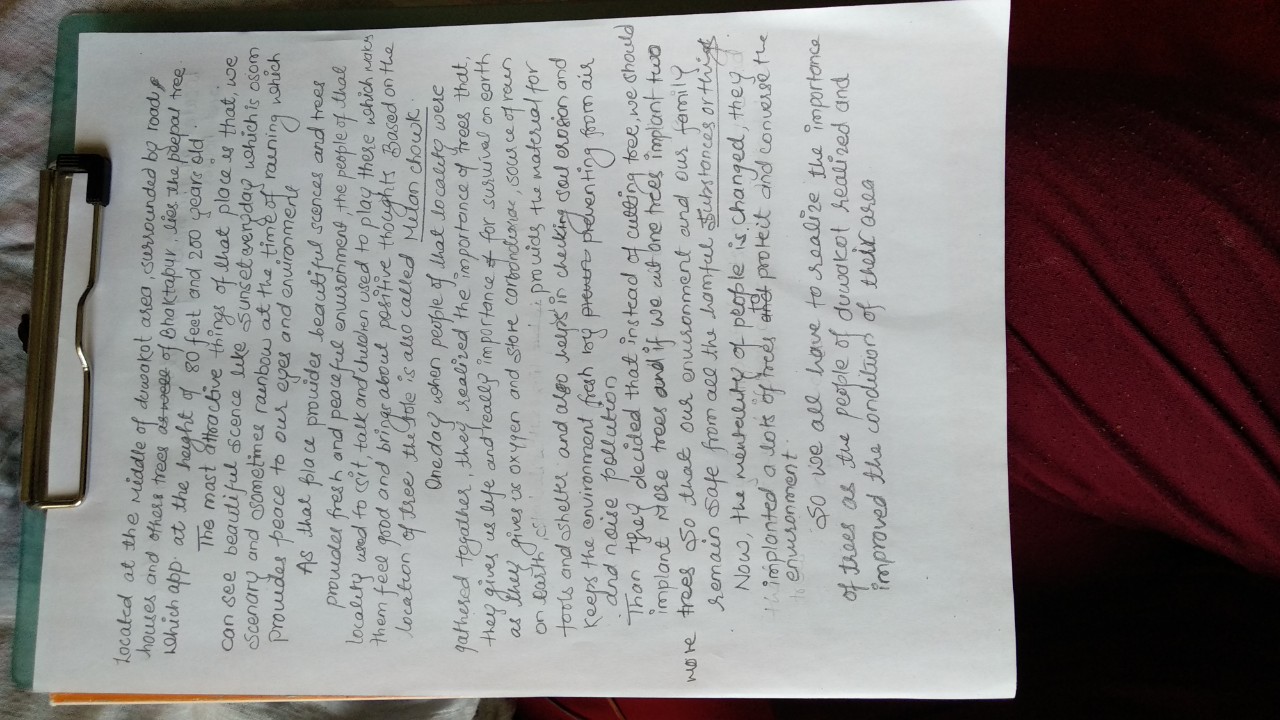 Located at the Middle of duwakot area surrounded by roads
houses and others trees as well of Bhaktapur. lies the peepal tree
which app. at the height of 80 feet and 200 years old.
The most attractive things of that place is that, we
can see beautiful scence like Sunset everyday which is osom
scenary and sometimes rainbow at the time of raining which
provides peace to our eyes and environment
As that place provides beautiful scences and trees
provides fresh and peaceful environment the people of that
locality used to sit, talk and children used to play there which makes
them feel good and brings about positive thoughts. Based on the
location of tree the tole is also called Milan chowk.
Oneday when people of that locality were
gathered togather, they realized the importance of trees that,
they gives us life and really importance for survival on earth
as they gives us oxygen and store carbondioxe, source of rain
on earth, provides the material for
tools and shelter and also helps in checking soul erosion and
keeps the environment fresh by preventing from air
and noise pollution
Than they decided that instead of cutting tree, we should
implant More trees and if we cut one trees implant two
more trees So that our environment and our family
remain safe from all the hamful Substances or things
Now, the mentality of people is changed, they
implanted a lots of trees to protect and converse the
environment.
So we all have to realize the importance
of trees as the people of duwakot realized and
improved the condition of their area